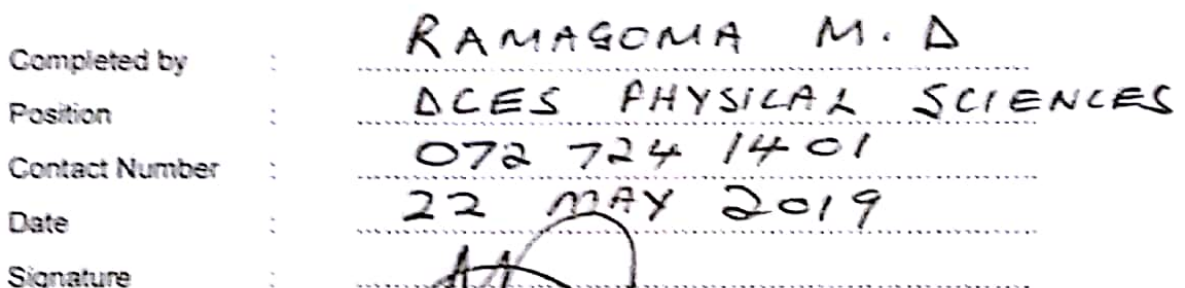 Completed by : RAMAGOMA M. D
Position : DCES PHYSICAL SCIENCES
Contact Number : 072 724 1401
Date : 22 MAY 2019
Signature :